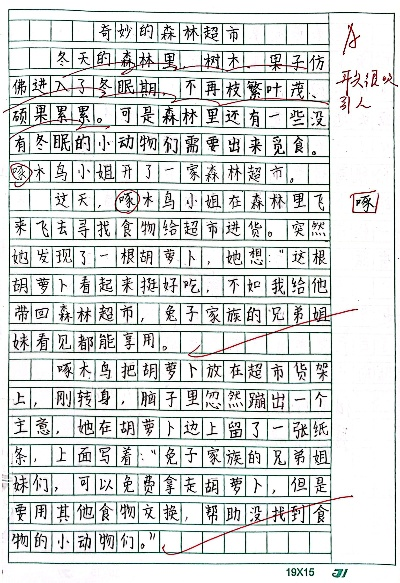 奇妙的森林超市
冬天的森林里，树木、果子仿
佛进入了冬眠期，不再枝繁叶茂、
硕果累累。可是森林里还有一些没
有冬眠的小动物们需要出来觅食。
啄木鸟小姐开了一家森林超市。
这天，啄木鸟小姐在森林里飞
来飞去寻找食物给超市进货。突然
她发现了一根胡萝卜，她想：“这根
胡萝卜看起来挺好吃，不如我给他
带回森林超市，兔子家族的兄弟姐
妹看见都能享用。
啄木鸟把胡萝卜放在超市货架
上，刚转身，脑子里忽然蹦出一个
主意，她在胡萝卜边上留了一张纸
条，上面写着：“兔子家族的兄弟姐
妹们，可以免费拿走胡萝卜，但是
要用其他食物交换，帮助没找到食
物的小动物们。”
A
开头很吸
引人
啄
19X15